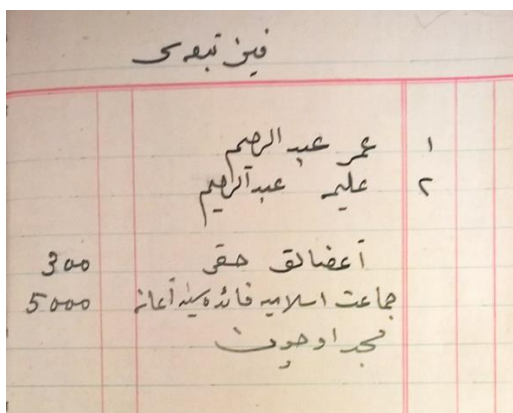 فين تبعه‌سى
١ عمر عبد الرحيم
٢ عليمه عبد الرحيم
أعضالق حقى 300
جماعت اسلاميه فائده‌سينه أعانه 5000
مسجد اوچون